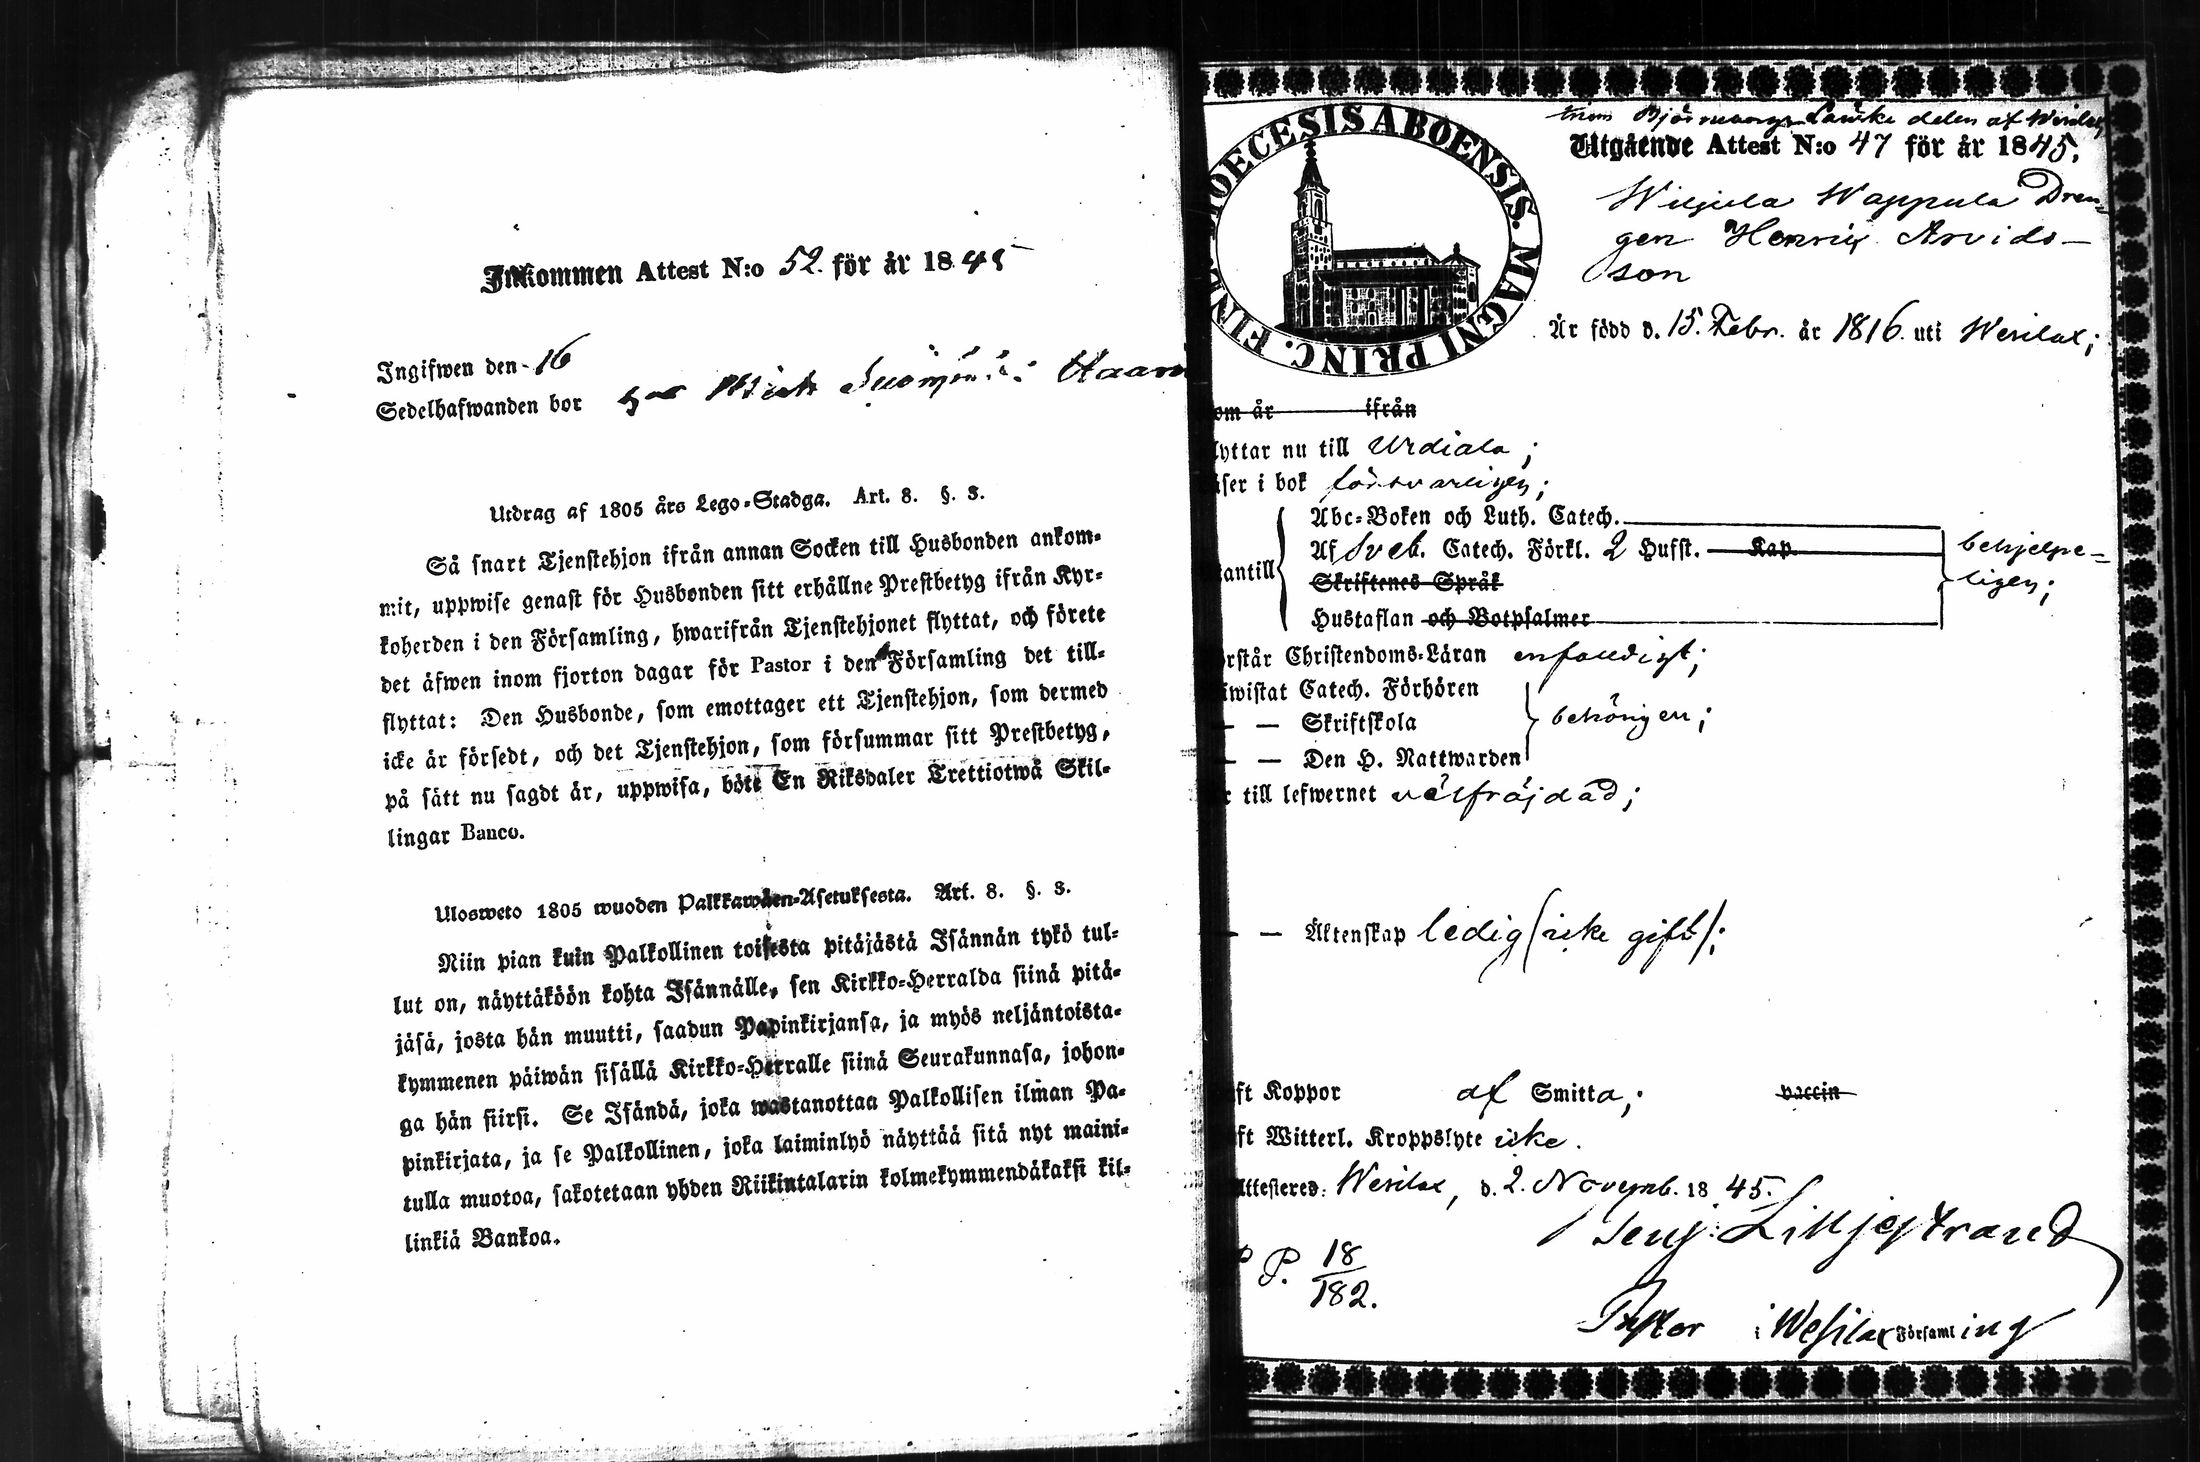 Inkommen Attest N:o 52. för år 1845
Ingifwen den 16
Sedelhafwanden bor
Utdrag af 1805 års Lego-Stadga. Art. 8. §. 3.
Så snart Tjenstehjon ifrån annan Socken till Husbonden ankom-
mit, uppwise genast för Husbonden sitt erhållne Prestbetyg ifrån Kyr-
koherden i den Församling, hwarifrån Tjenstehjonet flyttat, och förete
det äfwen inom fjorton dagar för Pastor i den Församling det till-
flyttat: Den Husbonde, som emottager ett Tjenstehjon, som dermed
icke är försedt, och det Tjenstehjon, som försummar sitt Prestbetyg,
på sätt nu sagdt är, uppwisa, böte En Riksdaler Trettiotwå Skil-
lingar Banco.
Ulosweto 1805 wuoden Palkkawäen-Asetuksesta. Art. 8. §. 3.
Niin pian kuin Palkollinen toisesta pitäjästä Isännän tykö tul-
lut on, näyttäköön kohta Isännälle, sen Kirkko-Herralda siinä pitä-
jäsä, josta hän muutti, saadun Papinkirjansa, ja myös neljäntoista-
kymmenen päiwän sisällä Kirkko-Herralle siinä Seurakunnasa, johon-
ga hän siirsi. Se Isändä, joka wastanottaa Palkollisen ilman Pa-
pinkirjata, ja se Palkollinen, joka laiminlyö näyttää sitä nyt maini-
tulla muotoa, sakotetaan yhden Riikintalarin kolmekymmendäkaksi kil-
linkiä Bankoa.
DIOECESIS ABOENSIS. MAGNI PRINC. FINL.
Björneborgs Länske delen af Wesilax,
Utgående Attest N:o 47 för år 1845.
Wiljula Wappula Dren-
gen Henrik Arvids-
son
Är född d. 15. Febr. år 1816. uti Wesilax;
om år ifrån
lyttar nu till Urdiala;
äser i bok försvarligen;
Abc-Boken och Luth. Catech.
Af Sveb. Catech. Förkl. 2 Hufst. Kap. behjelpe-
antill Skriftenes Språk ligen;
Hustaflan och Botpsalmer
rstår Christendoms-Läran enfaldigt;
iwistat Catech. Förhören
— — Skriftskola behörigen;
— — Den H. Nattwarden
r till lefwernet välfräjdad;
— — Äktenskap ledig (icke gift);
ft Koppor af Smitta; vaccin
ft Witterl. Kroppslyte icke.
Attesteres: Wesilax, d. 2. Novemb. 1845.
Benj. Lilljestrand
P. 18
182.
Pastor i Wesilax Församling